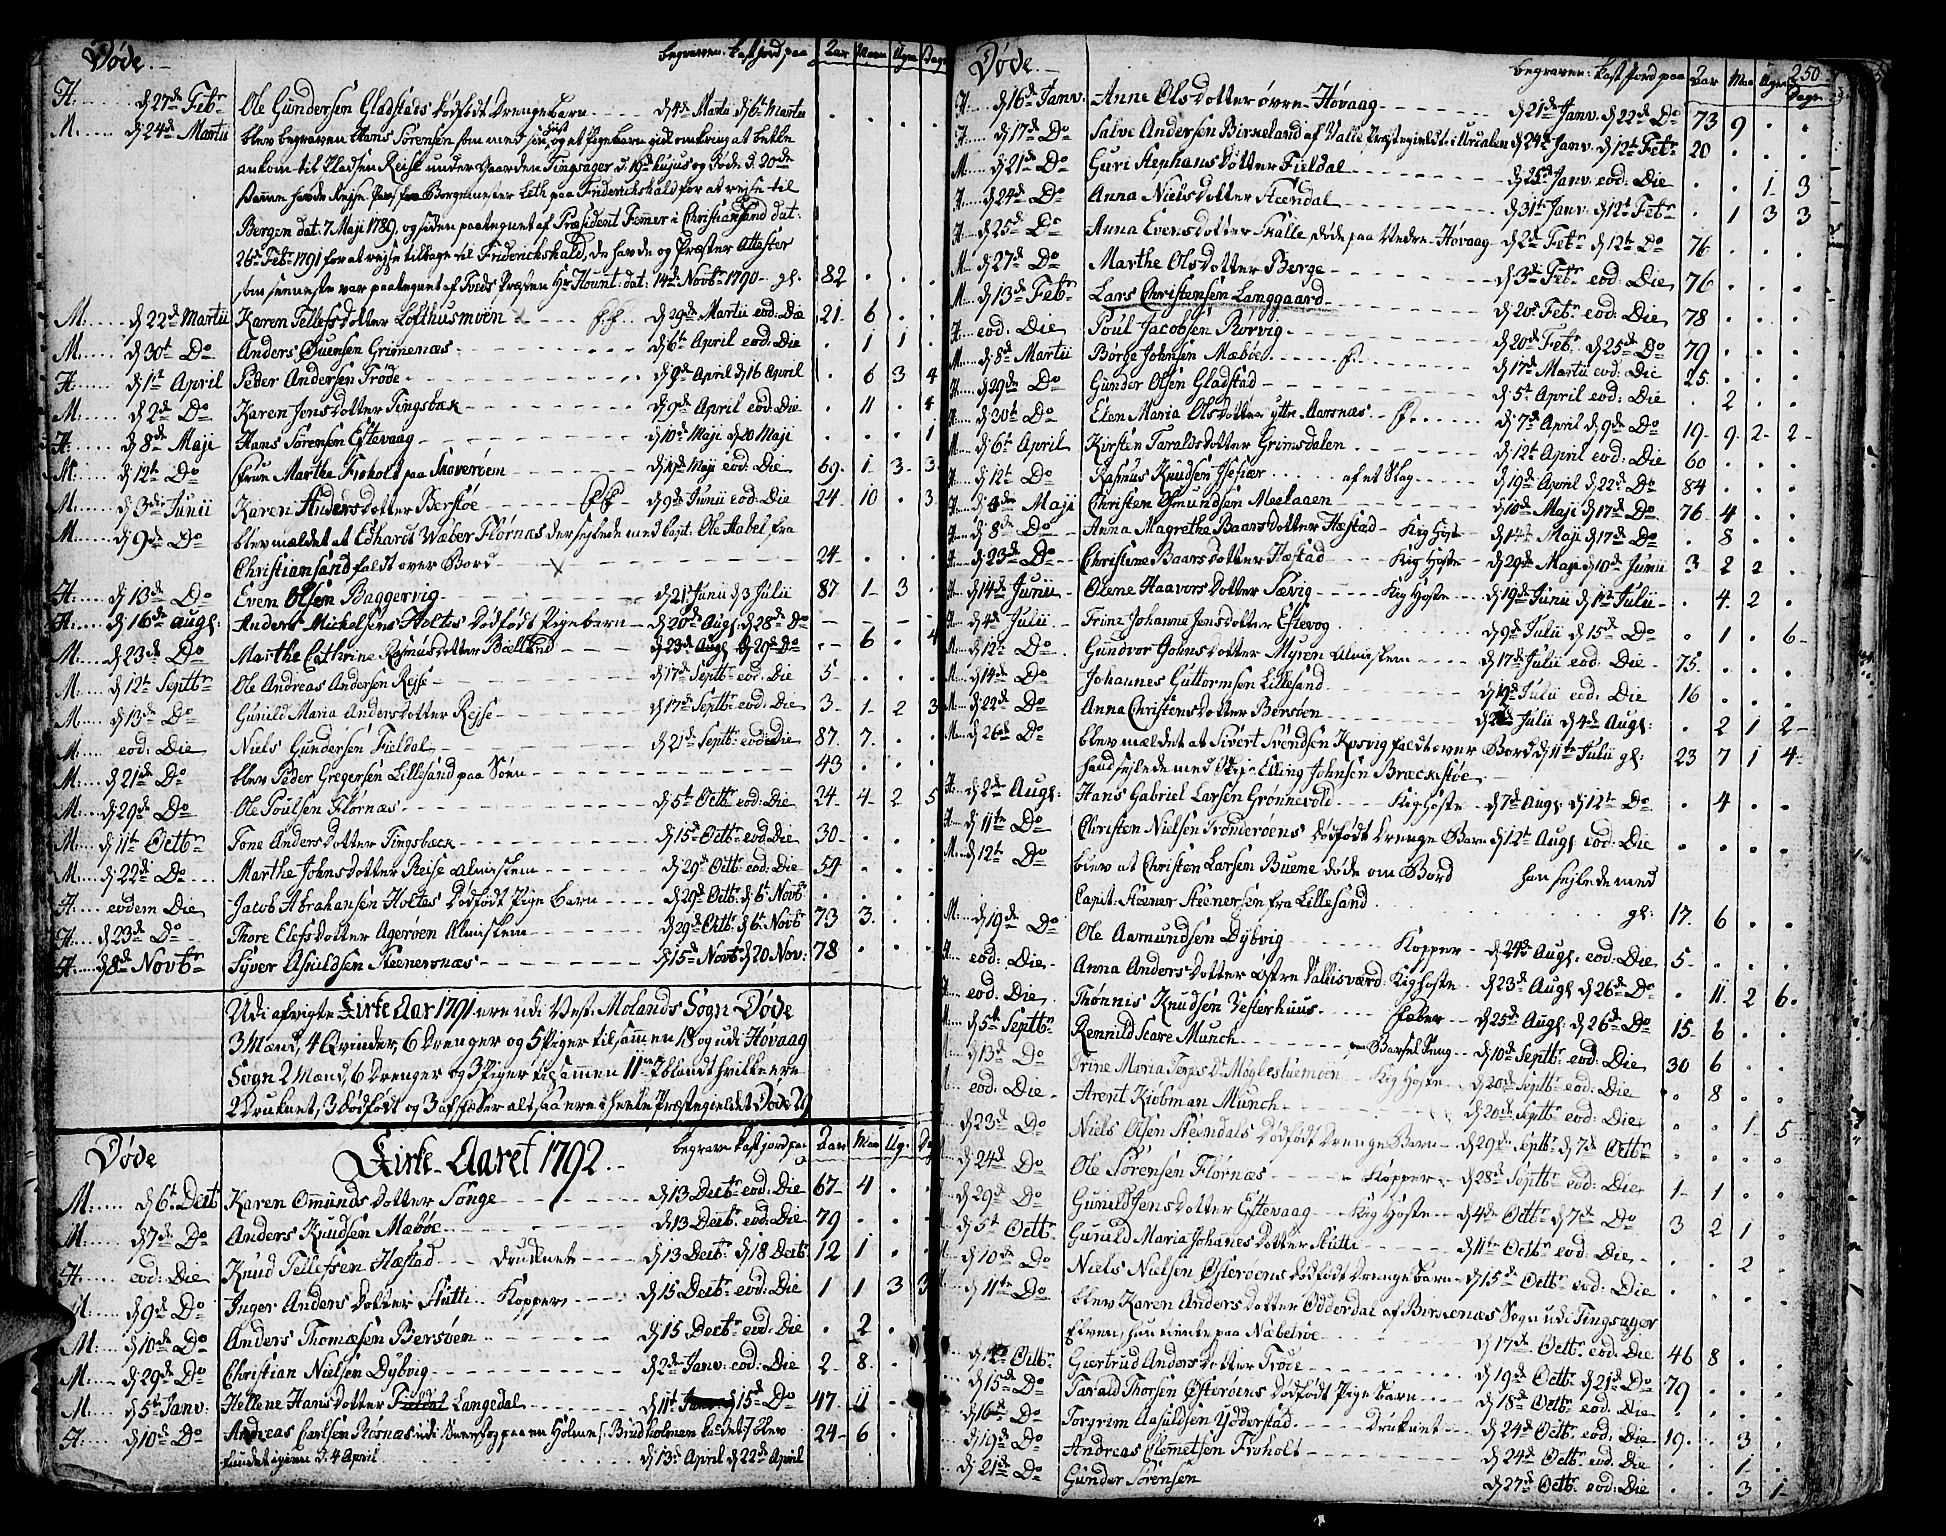 Døde. begraven: kast jord paa Aar Maan Ugr: Dage
H. d 27de Febr Ole Gundersen Gladstads dødfødt Drengebarn d 4de Martii d 6t Martii . . . .
M. d 24de Martii blev begraven Hans Sørensen som med sin og et Pigebarn gik omkring at betle
ankom til Pladsen Reise under Gaarden Tingsager d. 19de hujus og døde d. 20de
Bergen dat. 7 Maji 1789, og siden paategnet af Præsident Femmer i Christiansand dat:
26de Febr 1791 for at rejse tilbage til Friderichshald, de havde og Præsters Attester
som senneste var paategnet af Tveds Præsten Hr Hount: dat: 14de Novbr 1790 gl. 82 . . .
M. d 22de Martii Karen Tellefsdotter Lofthusmoen d 29de Martii eod: Die 21 6 . .
M. d 30t Do Anders Ouensen Grimenæs d 6t April eod: Die . 1 1 .
H. d 1st April Peder Andersen Trøde d 9de April d 16 April . 6 3 4
M. d 2de Do Karen Jonsdotter Tingsbæk d 9de April eod: Die . 11 . 4
H. d 8de Maji Hans Sørensen Eftevaag d 10de Maji d 20 Maji . . . 1
M. d 12t Do Frue Marthe Froholt paa Skoverøen d 19de Maji eod: Die 69 1 3 3
M. d 3de Junii Karen Andersdotter Berstøe d 9de Junii eod: Die 24 10 . 3
M. d 9de Do blev mældet at Edhardt Wæber Flørnæs der sejlede med Capt: Ole Habel fra
Christiansand faldt over Bord 24 . . .
H. d 13de Do Even Olsen Baggervig d 21st Junii d 3 Julii 87 1 3 .
H. d 16de Augs: Anders Nickolsens Holtes Dødfødt Pigebarn d 20de Augs: d 28de Do
M. d 23de Do Marthe Cathrine Rasmusdotter Bælland d 23de Augs d 29de Do . 6 . 4
M. d 12t Septbr Ole Andreas Andersen Rejse d 17de Septbr eod: Die 5 . . .
M. d 13de Do Gunild Maria Andersdotter Rejse d 17de Septbr eod: Die 3 1 2 3
M. eod: Die Niels Gundersen Fieldal d 21de Septbr eod: Die 87 7 . .
M. d 21de Do blev Peder Gregersen Lillesand paa Søen 43 . . .
M. d 29de Do Ole Poulsen Flørnæs d 5t Octbr eod: Die 24 4 2 5
M. d 11t Octbr Tone Andersdotter Tingsbæck d 15de Octbr eod: Die 30 . . .
M. d 22de Do Marthe Johnsdotter Reise Almiskem d 29de Octbr eod: Die 54 . . .
H. eodem Die Jacob Abrahansen Holtes Dødfødt Pige Barn d 29de Octbr d 6t Novbr . . . .
H. d 23de Do Thore Elefsdotter Agerøen Almiskem d 29de Octbr d 6t Novbr 73 3 . .
H. d 8de Novbr Syver Asuldsen Steenersnæs d 15de Novbr d 20 Nov: 78 . . .
Udi afvigte Kirke Aar 1791 ere udi Vest: Molands Sogn Døde
3 Mænd, 4 Qvinder, 6 Drenger og 5 Piger tilsammen 18 og udi Høvaag
Sogn 2 Mænd, 6 Drenger og 3 Piger tilsammen 11 iblandt hvilke ere
2 Druknet, 3 Dødfødt og 3 af saa ere i heele Præstegieldet Døde 29
Døde Kirke-Aaret 1792. begrav: kast jord paa Aar Maa Ug: Da
M. d 6t Decbr Karen Omundsdotter Songe d 13 Decbr eod: Die 67 4 . .
M. d 7de Do Anders Knudsen Mæbøe d 13 Decbr eod: Die 79 . . .
H. eod: Die Knud Tellefsen Hæstad druknet d 13 Decbr d 18 Decbr 12 1 . .
M. d 9de Do Inger Andersdotter Stutti Kopper d 15 Decbr eod: Die 1 1 3 3
M. d 10de Do Anders Thomæsen Bersøen d 15 Decbr eod: Die . 2 .
M. d 29de Do Christian Nielsen Dybvig d 2de Janv: eod: Die 2 8 .
M. d 5t Janv: Hellene Hansdotter Fieldal Langedal d 11t d 15de Do 47 11 .
H. d 10de Do Andreas Carlsen Rosnæs udi paa en Holme /: Brudholmen kaldet :/ blev 24 6 .
fundet igien d. 4 April d 13de April d 22de April
Døde. begraven: kast jord paa Aar Maa Ugr: Dage 250
H. d 16de Janv. Anne Olsdotter øvre Høvaag d 21de Janv. d 22de Do 73 9 . .
H. d 17de Do Salve Andersen Birkeland af Valle Præstegieldet i d 24de Janv. d 12t Febr 20 . . .
M. d 21de Do Guri Stephansdotter Fieldal d 25de Janv. eod: Die . . 1 3
H. d 24de Do Anna Nielsdotter Steendal d 31t Janv. d 12t Febr . 1 3 3
H. d 25de Do Anna Evensdotter Skalle døde paa Nedre Høvaag d 2de Febr d 12t Do 76 . . .
M. d 27de Do Marthe Olsdotter Berge d 3de Febr eod: Die 76 . . .
M. d 13de Febr Lars Christensen Langgaard d 20de Febr eod: Die 78 . . .
H. eod: Die Poul Jacobsen Rørvig d 20de Febr. d 25de Do 79 . . .
M. d 8de Martii Børge Johnsen Mæbøe d 17de Martii eod: Die 25 . . .
H. d 29de Do Gunder Olsen Gladstad d 5t April eod: Die . 2 . .
H. d 30t Do Elen Maria Olsdotter ytre Aarsnæs d 7de April d 9de Do 19 9 2 2
M. d 6t April Kirsten Taraldsdotter Grimsdalen d 12t April eod: Die 60 . . .
H. d 12t Do Rasmus Knudsen Isefiær af et Slag d 19de April d 22de Do 84 . . .
H. d 4de Maji Christen Osmundsen Meelaaen d 10de Maji d 17de Do 76 4 . .
H. d 8de Do Anna Magrethe Baarsdotter Hæstad Kighoste d 14de Maji d 17de Do . 8 . .
H. d 23de Do Christene Baarsdotter Hæstad Kighoste d 29de Maji d 10de Junii 3 2 2 .
H. d 14de Junii Olene Haavorsdotter Sævig Kighoste d 19de Junii d 1st Julii . 4 2 .
H. d 4de Julii Trine Johanne Jensdotter Eftevog d 9de Julii d 15de Do . 1 . 6
M. d 12t Do Gundvor Johnsdotter Myren Almiskem d 17de Julii eod: Die 75 . . .
M. d 14de Do Johannes Guttormsen Lillesand d 19de Julii eod: Die 16 . . .
M. d 22de Do Anna Christensdotter Bersøen Julii d 4de Augs: . 2 1 2
M. d 26de Do blev mældet at Sivert Svendsen Kosvig faldt over Bord d 11te Julii gl: 23 7 1 4
hand sejlede med Skip: Elling Johnsen Bræckestøe
H. d 2de Augs: Hans Gabriel Larsen Grønnevold Kighoste d 7de Augs: d 12t Do . 4 . .
H. d 11te Do Christen Nielsen Trømerøens dødfødt Drenge Barn d 12t Augs eod: Die . . . .
M. d 12t Do blev at Christen Larsen Buene døde om Bord han sejlede med
Capit: Steener Steenersen fra Lillesand gl: 17 6 . .
M. d 19de Do Ole Aamundsen Dybvig Kopper d 24de Augs: eod: Die 5 . . .
H. eod: Die Anna Andersdotter Østre Vallesværd Kighoste d 23de Augs d 26de Do . 11 2 6
H. eod: Die Thønnis Knudsen Vesterhuus Fæber d 25de Augs d 26de Do 15 6 . .
M. d 5t Septbr Rennild Scare Munch Barsel Seng d 10de Septbr eod: Die 30 6 . .
M. d 13de Do Trine Maria Terjes Dr Møglestuemoen Kighoste d 20de Septbr eod: Die . 8 . .
M. eod: Die Arent Kiøbman Munch d 20de Septbr eod: Die . . 1 5
H. d 23de Do Niels Olsen Steendals Dødfødt Drenge Barn d 29de Septbr d 7de Octbr . . . .
M. d 24de Do Ole Sørensen Flørnæs Kopper d 28de Septbr eod: Die 1 1 . .
H. d 29de Do Gunild Jensdotter Eftevaag Kighoste d 4de Octbr d 7de Do 3 2 1 .
M. d 5t Octbr Gunild Maria Johanesdotter Stutti d 11te Octbr eod: Die . . 2 .
M. d 10de Do Niels Nielsen Østerøens dødfødt Drengebarn d 15de Octbr eod: Die . . . .
M. d 11te Do blev Karen Andersdotter Odderdal af Birkenæs Sogn udi Tingsager
Elven, hun tiente paa Næbetrøe d 17de Octbr eod: Die 46 8 . .
Octbr Giertrud Andersdotter Trøde d 19de Octbr d 21de Do 79 . . .
d 15de Do Tarald Thorsen Østerøens Dødfødt Pige barn d 18de Octbr eod: Die . . . .
d 16de Do Torgrim Aasuldsen Ydderstad Druknet d 24de Octbr eod: Die 19 . 3 .
d 19de Do Andreas Clemetsen Froholt d 24de Octbr eod: Die . . 1 .
d 21de Do Gunder Sørensen d 27de Octbr eod: Die . . 3 1